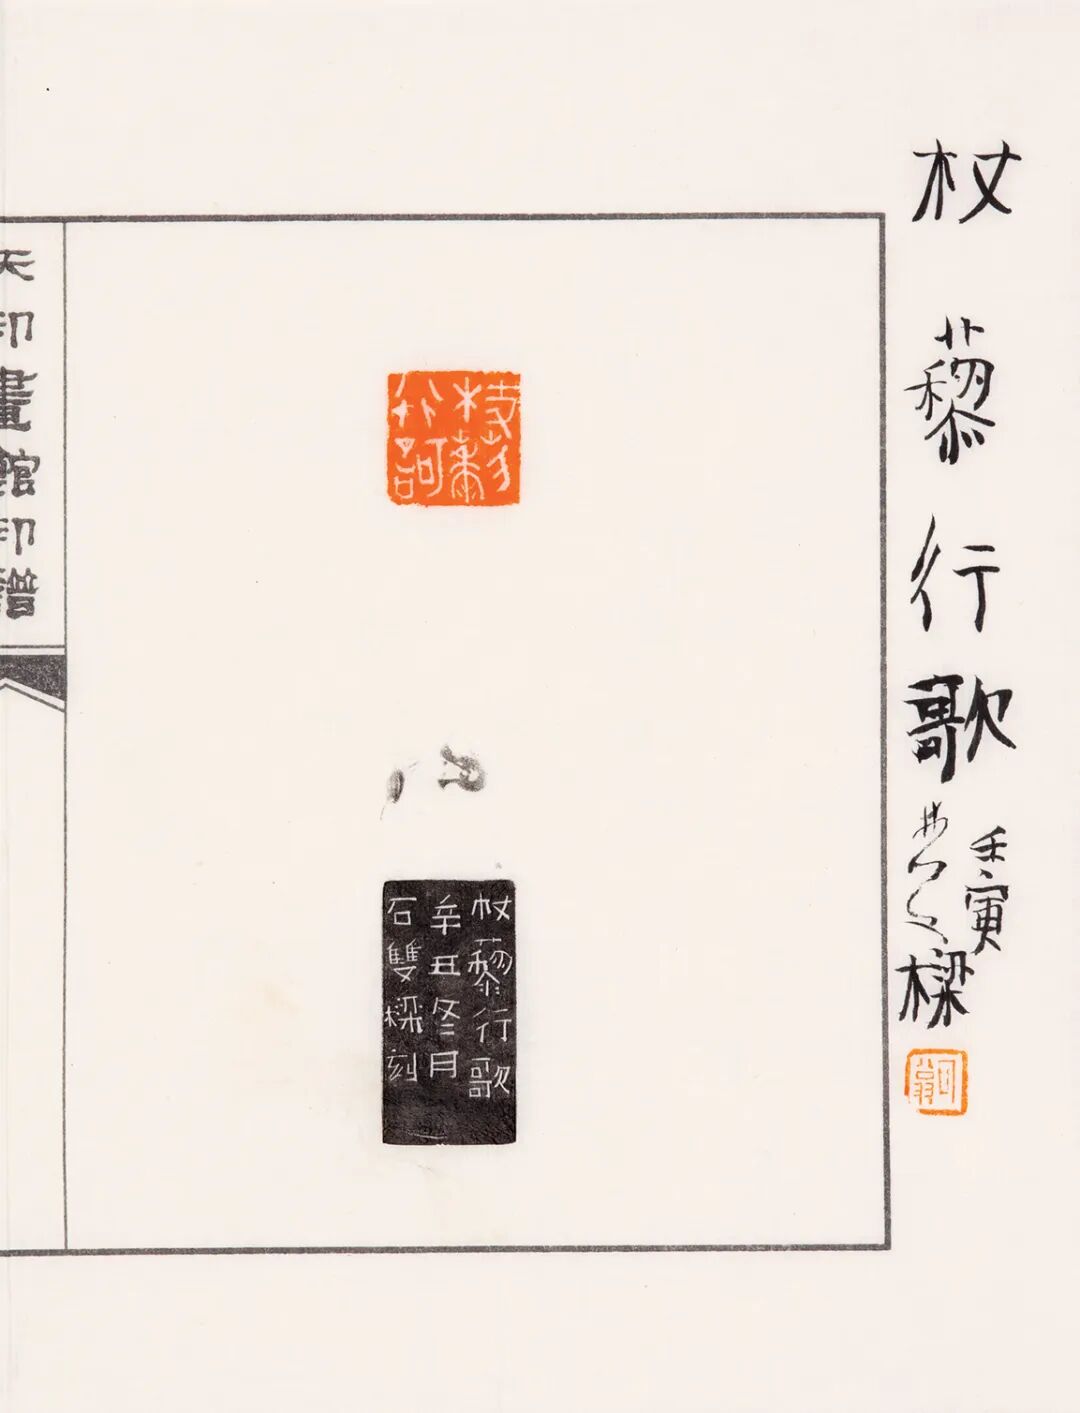 杖藜行歌
壬寅
樑
杖藜行歌
杖藜行歌
辛丑冬月
石雙樑刻
天印畫館印譜